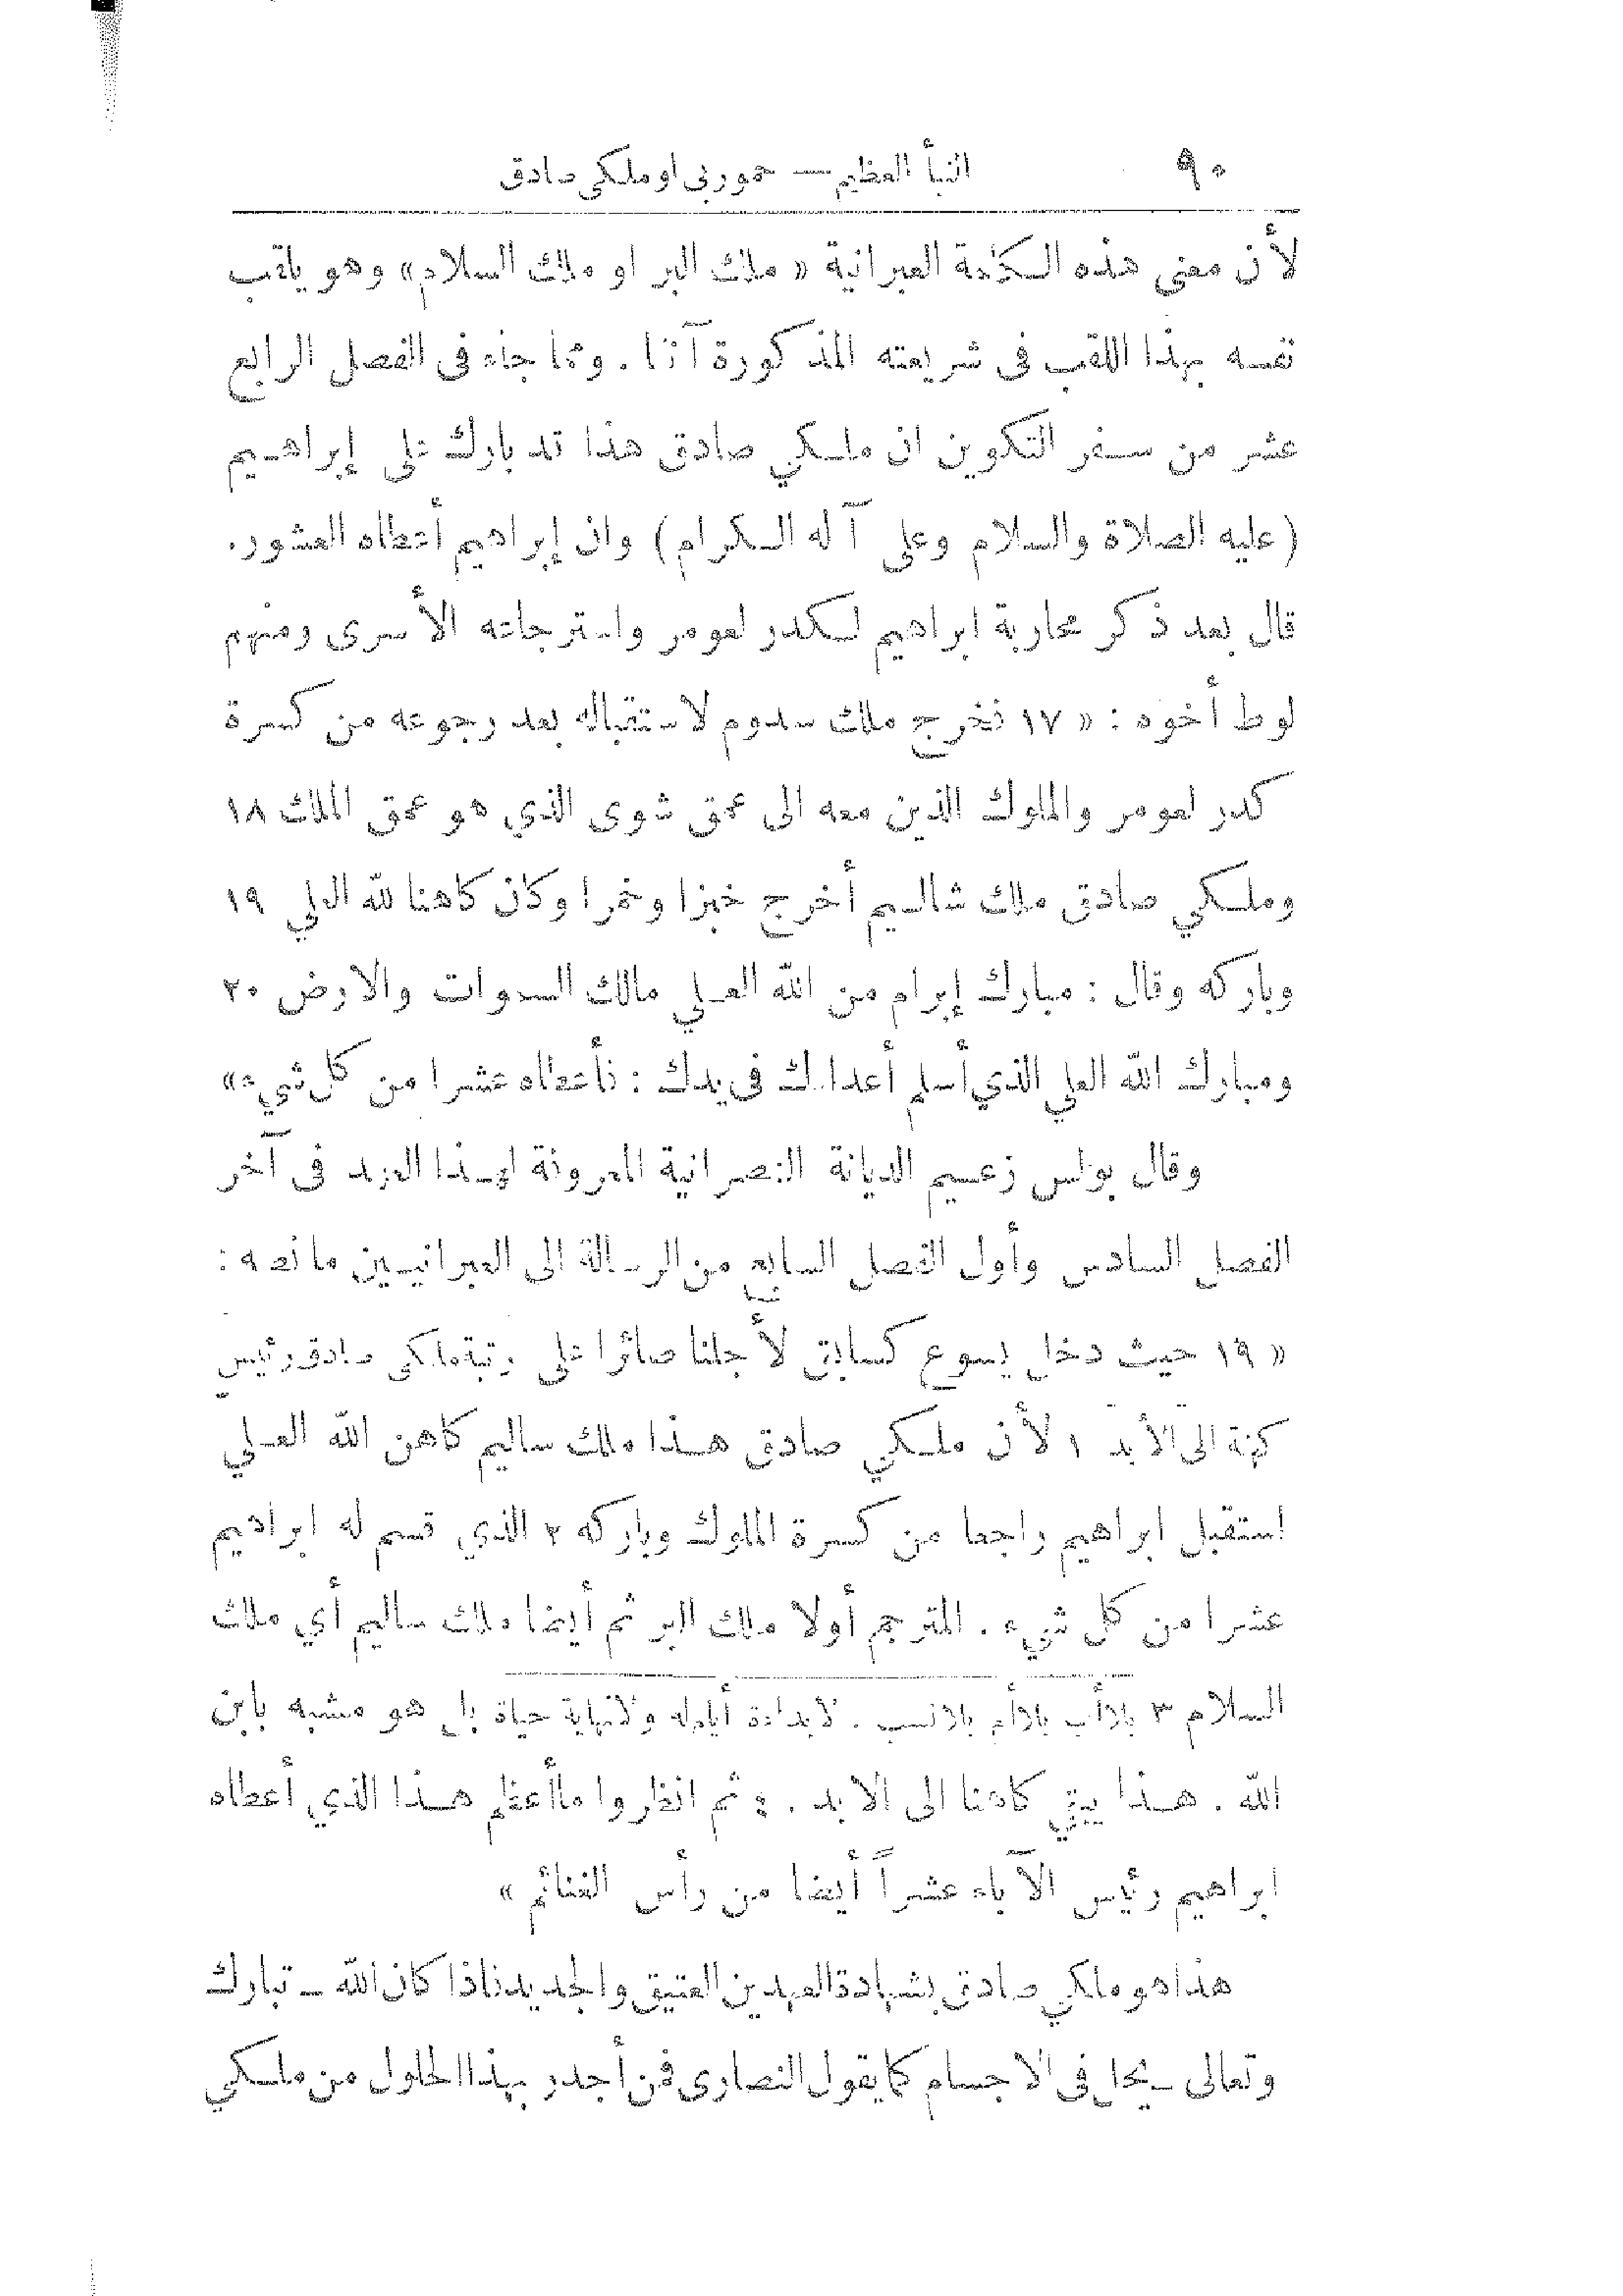 ٩٠ النبأ العظيم — حموربي او ملكي صادق
لأن معنى هذه الكلمة العبرانية « ملك البر او ملك السلام» وهو يلقب
نفسه بهذا اللقب فى شريعته المذكورة آنفا . ومما جاء فى الفصل الرابع
عشر من سفر التكوين ان ملكي صادق هذا قد بارك على إبراهيم
(عليه الصلاة والسلام وعلى آله الكرام) وان إبراهيم أعطاه العشور.
قال بعد ذكر محاربة ابراهيم لكدر لعومر واسترجاعه الأسرى ومنهم
لوط أخوه : « ١٧ فخرج ملك سدوم لاستقباله بعد رجوعه من كسرة
كدر لعومر والملوك الذين معه الى عمق شوى الذي هو عمق الملك ١٨
وملكي صادق ملك شاليم أخرج خبزا وخمرا وكان كاهنا لله العلي ١٩
وباركه وقال : مبارك إبرام من الله العلي مالك السموات والارض ٢٠
ومبارك الله العلي الذي أسلم أعداءك فى يدك : فأعطاه عشرا من كل شيء»
وقال بولس زعيم الديانة النصرانية المعروفة لهذا العهد فى آخر
الفصل السادس وأول الفصل السابع من الرسالة الى العبرانيين ما نصه :
« ١٩ حيث دخل يسوع كسابق لأجلنا صائرا على رتبة ملكي صادق رئيس
كهنة الى الأبد ١ لأن ملكي صادق هذا ملك ساليم كاهن الله العلي
استقبل ابراهيم راجعا من كسرة الملوك وباركه ٢ الذي قسم له ابراهيم
عشرا من كل شيء . المترجم أولا ملك البر ثم أيضا ملك ساليم أي ملك
السلام ٣ بلا أب بلا أم بلا نسب . لا بداءة أيام له ولا نهاية حياة بل هو مشبه بابن
الله . هذا يبقى كاهنا الى الابد . ٤ ثم انظروا ما أعظم هذا الذي أعطاه
ابراهيم رئيس الآباء عشراً أيضا من رأس الغنائم »
هذا هو ملكي صادق بشهادة العهدين العتيق والجديد فاذا كان الله ـ تبارك
وتعالى ـ يحل فى الاجسام كما يقول النصارى فمن أجدر بهذا الحلول من ملكي